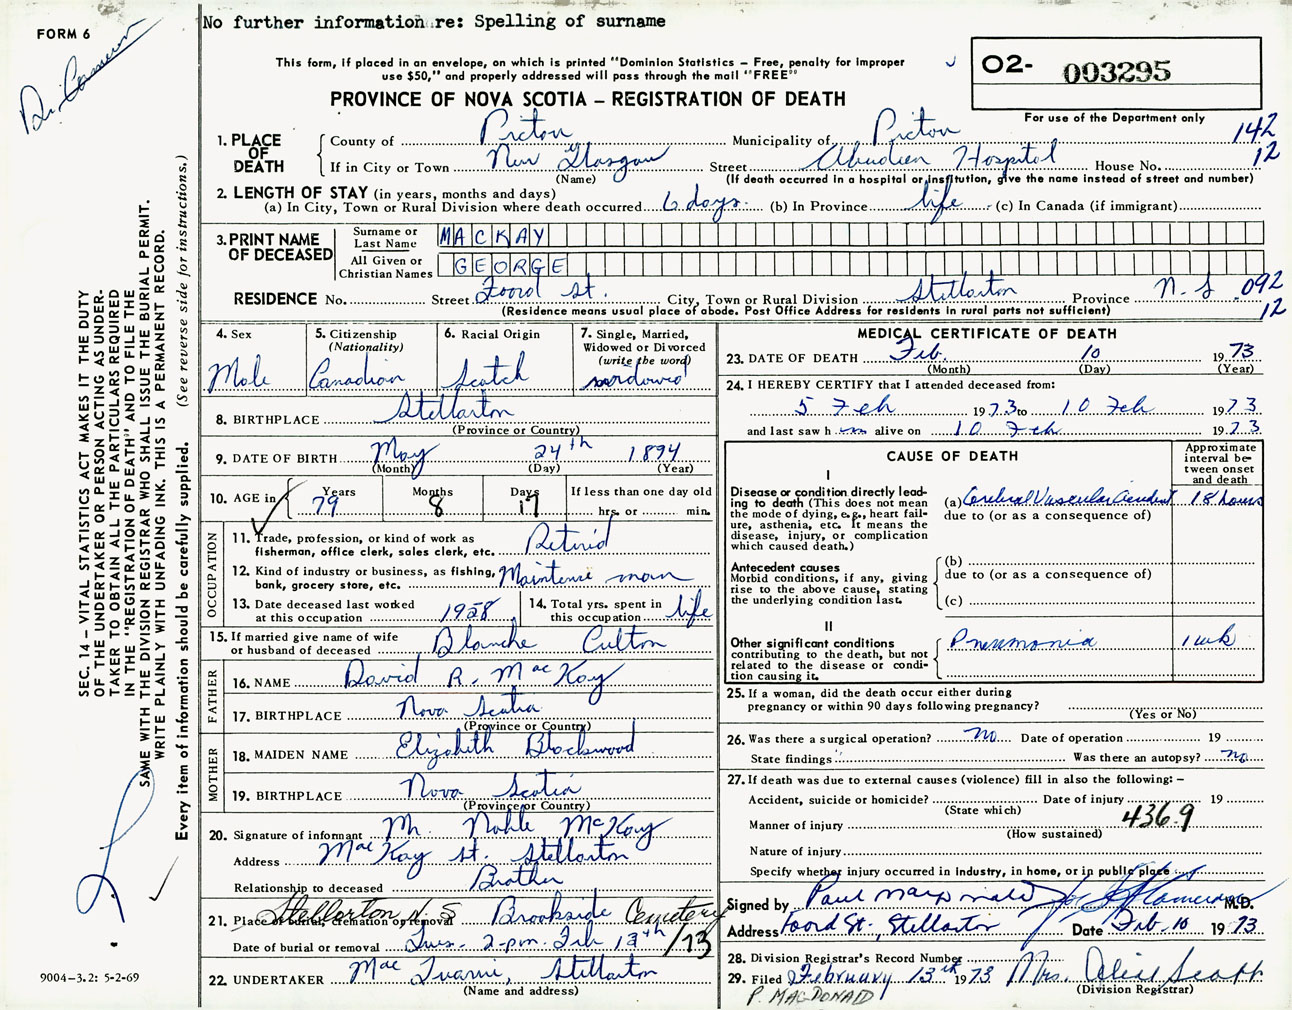 No further information re: Spelling of surname
FORM 6
This form, if placed in an envelope, on which is printed "Dominion Statistics – Free, penalty for improper
use $50," and properly addressed will pass through the mail "FREE"
PROVINCE OF NOVA SCOTIA – REGISTRATION OF DEATH
O2- 003295
For use of the Department only
142
12
1. PLACE OF DEATH
County of Pictou Municipality of Pictou
If in City or Town New Glasgow Street Aberdeen Hospital House No.
(Name) (If death occurred in a hospital or institution, give the name instead of street and number)
2. LENGTH OF STAY (in years, months and days)
(a) In City, Town or Rural Division where death occurred 6 days. (b) In Province life (c) In Canada (if immigrant)
3. PRINT NAME OF DECEASED
Surname or Last Name MACKAY
All Given or Christian Names GEORGE
RESIDENCE No. Street Foord St. City, Town or Rural Division Stellarton Province N.S. 092
12
(Residence means usual place of abode. Post Office Address for residents in rural parts not sufficient)
4. Sex
Male
5. Citizenship
(Nationality)
Canadian
6. Racial Origin
Scotch
7. Single, Married,
Widowed or Divorced
(write the word)
8. BIRTHPLACE Stellarton
(Province or Country)
9. DATE OF BIRTH May 24th 1894
(Month) (Day) (Year)
10. AGE in
Years 79
Months 8
Days 17
If less than one day old
hrs. or min.
OCCUPATION
11. Trade, profession, or kind of work as
fisherman, office clerk, sales clerk, etc. Retired
12. Kind of industry or business, as fishing,
bank, grocery store, etc. Maintence man
13. Date deceased last worked
at this occupation 1958
14. Total yrs. spent in
this occupation life
15. If married give name of wife
or husband of deceased Blanche Culton
FATHER
16. NAME David R. MacKay
17. BIRTHPLACE Nova Scotia
(Province or Country)
MOTHER
18. MAIDEN NAME Elizabeth Blackwood
19. BIRTHPLACE Nova Scotia
(Province or Country)
20. Signature of informant Mr. Noble McKay
Address MacKay St. Stellarton
Relationship to deceased Brother
21. Place of burial, cremation or removal Stellarton N.S. Brookside Cemetery
Date of burial or removal Tues. 2-pm. Feb 13th /73
22. UNDERTAKER Mac Stellarton
(Name and address)
MEDICAL CERTIFICATE OF DEATH
23. DATE OF DEATH Feb. 10 1973
(Month) (Day) (Year)
24. I HEREBY CERTIFY that I attended deceased from:
5 Feb 1973 to 10 Feb 1973
and last saw h im alive on 10 Feb 1973
CAUSE OF DEATH
Approximate
interval be-
tween onset
and death
I
Disease or condition directly lead-
ing to death (This does not mean
the mode of dying, e.g., heart fail-
ure, asthenia, etc. It means the
disease, injury, or complication
which caused death.)
(a) Cerebral Vascular accident 18 hours
due to (or as a consequence of)
Antecedent causes
Morbid conditions, if any, giving
rise to the above cause, stating
the underlying condition last.
(b)
due to (or as a consequence of)
(c)
II
Other significant conditions
contributing to the death, but not
related to the disease or condi-
tion causing it.
Pneumonia 1 wk
25. If a woman, did the death occur either during
pregnancy or within 90 days following pregnancy?
(Yes or No)
26. Was there a surgical operation? no Date of operation 19
State findings Was there an autopsy? no
27. If death was due to external causes (violence) fill in also the following: –
Accident, suicide or homicide? Date of injury 19
(State which)
Manner of injury 436.9
(How sustained)
Nature of injury
Specify whether injury occurred in Industry, in home, or in public place
Signed by Paul MacDonald M.D.
Address Foord St., Stellarton Date Feb. 10 1973
28. Division Registrar's Record Number
29. Filed February 13th 1973 Mrs. Alice Scott
(Division Registrar)
P. MACDONALD
SEC. 14 – VITAL STATISTICS ACT MAKES IT THE DUTY
OF THE UNDERTAKER OR PERSON ACTING AS UNDER-
TAKER TO OBTAIN ALL THE PARTICULARS REQUIRED
IN THE "REGISTRATION OF DEATH" AND TO FILE THE
SAME WITH THE DIVISION REGISTRAR WHO SHALL ISSUE THE BURIAL PERMIT.
WRITE PLAINLY WITH UNFADING INK. THIS IS A PERMANENT RECORD.
Every item of information should be carefully supplied. (See reverse side for instructions.)
9004-3.2: 5-2-69